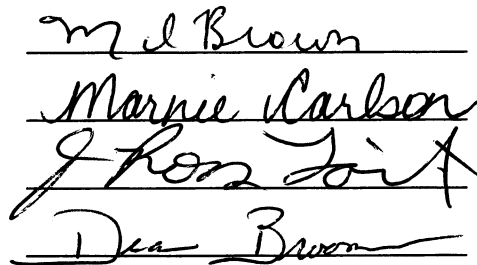 M L Brown
Marnie Carlson
J Ross
Dea Broom